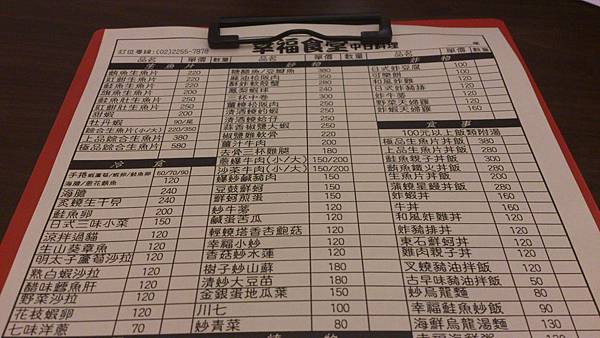 訂位專線:(02)2255-7878
幸福食堂 中日料理
品名 單價 數量
生魚片
鮪魚生魚片 220
紅魽生魚片 220
鮭魚生魚片 200
旗魚生魚片 200
鮭魚肚生魚片 250
紅魽肚生魚片 250
甜蝦 200
牡丹蝦 90/尾
綜合生魚片(小/大) 220/350
上品綜合生魚片 380
極品綜合生魚片 580
冷食
手捲 60/70/90
海膽 240
炙燒生干貝 240
鮭魚卵 200
日式三味小菜 150
涼拌過貓 120
生山葵章魚 120
明太子蘆筍沙拉 120
熟白蝦沙拉 120
醋味鱈魚肝 120
野菜沙拉 120
花枝蝦卵 120
七味洋蔥 70
品名 單價 數量
炒物
麻油松阪肉 350
酥炸軟殼蟹 280
鳳梨蝦球 300
薑燒松阪肉 250
清酒蛤蜊 250
蒜香椒鹽大蝦 250
椒鹽雞軟骨 220
薑汁牛肉 200
去骨三杯雞腿 200
蔥爆牛肉(小/大) 150/200
沙茶牛肉(小/大) 150/200
爆炒鹹豬肉 150
豆豉鮮蚵 150
鮮蚵煎蛋 150
炒牛蒡 150
鹹蛋苦瓜 150
輕燒塔香杏鮑菇 150
幸福小炒 150
香菇炒水蓮 180
樹子炒山蘇 180
清炒大豆苗 180
金銀蛋地瓜葉 150
川七 100
炒青菜 80
品名 單價 數量
炸物
日式炸豆腐 100
可樂餅 100
和風炸雞 160
日式炸豬排 120
炸牛蒡 120
野菜天婦羅 120
炸蝦天婦羅 160
食事
100元以上飯類附湯
極品生魚片丼飯 380
上品生魚片丼飯 280
鮭魚親子丼飯 300
鮪魚鐵火丼飯 280
生魚片丼飯 280
蒲燒星鰻丼飯 260
炸蝦丼 160
牛丼 160
和風炸雞丼 120
炸豬排丼 120
東石鮮蚵丼 120
雞肉親子丼 120
叉燒豬油拌飯 120
古早味豬油拌飯 50
炒烏龍麵 80
幸福鮭魚炒飯 90
海鮮烏龍湯麵 130